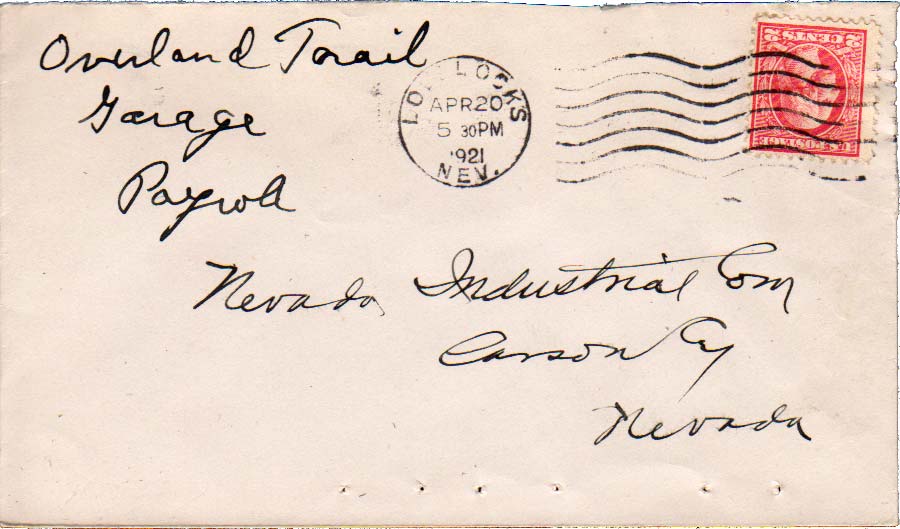 Overland Trail
Garage
Payroll
LOVELOCKS
APR 20
5 30 PM
1921
NEV.
2 CENTS 2
U.S. POSTAGE
Nevada Industrial Com
Carson Cy
Nevada